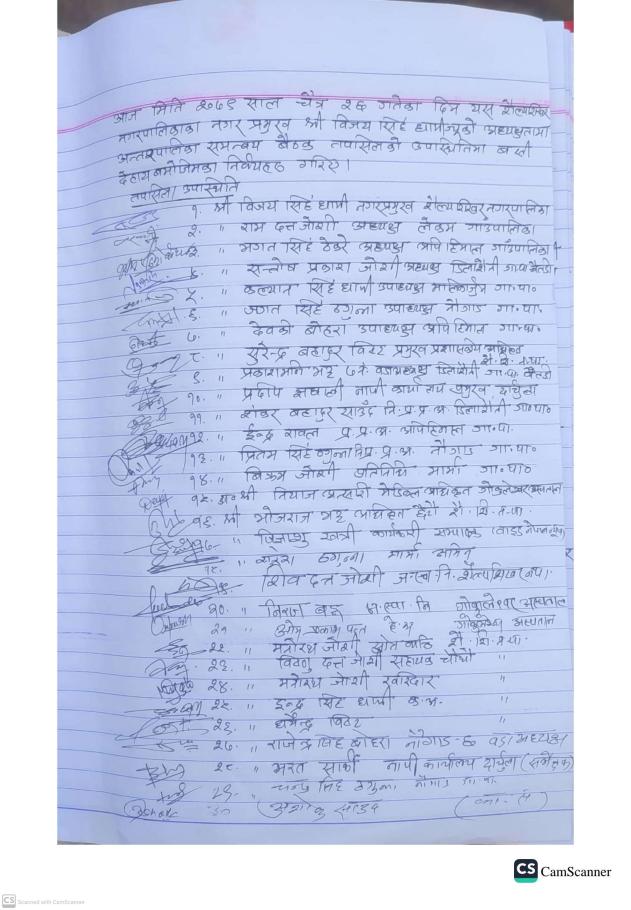 आज मिति २०७९ साल चैत्र २६ गतेका दिन यस शैल्यशिखर
नगरपालिकाका नगर प्रमुख श्री विजय सिंह धामीज्यूको अध्यक्षतामा
अन्तरपालिका समन्वय बैठक तपसिलको उपस्थितिमा बसी
देहाय बमोजिमका निर्णयहरु गरिए।
तपसिल/उपस्थिति
१. श्री विजय सिंह धामी नगरप्रमुख शैल्यशिखर नगरपालिका
२. " राम दत्त जोशी अध्यक्ष लेकम गाउँपालिका
३. " भगत सिंह ठेकरे अध्यक्ष अपि हिमाल गाउँपालिका
४. " सन्तोष प्रकाश जोशी अध्यक्ष डिलाशैनी गा.पा. बैतडी
५. " कल्यान सिंह धामी उपाध्यक्ष मालिकार्जुन गा.पा.
६. " जगत सिंह ठगुन्ना उपाध्यक्ष नौगाड गा.पा.
७. " देवकी बोहरा उपाध्यक्ष अपि हिमाल गा.पा.
८. " सुरेन्द्र बहादुर विष्ट प्रमुख प्रशासकीय अधिकृत
शै. शि. न.पा.
९. " प्रकाशमनि भट्ट ७ नं. वडाअध्यक्ष डिलाशैनी गा.पा. बैतडी
१०. " प्रदीप नापी कार्यालय प्रमुख, दार्चुला
११. " शंकर बहादुर साउँद नि.प्र.प्र.अ. डिलाशैनी गा.पा.
१२. " ईन्द्र रावल प्र.प्र.अ. अपिहिमाल गा.पा.
१३. " प्रितम सिंह ठगुन्ना नि.प्र.प्र.अ. नौगाड गा.पा.
१४. " बिक्रम जोशी प्रतिनिधि मार्मा गा.पा.
१५. डा. श्री नियाज अन्सारी मेडिकल अधिकृत गोकुलेश्वर अस्पताल
१६. श्री भोजराज भट्ट अधिकृत छैठौं शै. शि. न.पा.
१७. " खत्री कार्यकारी सम्पादक
१८. " ठगुन्ना मार्मा
शिव दत्त जोशी ज.स्वा.नि. शैल्यशिखर न.पा.
२०. " निराज बडू गोकुलेश्वर अस्पताल
२१ " ओम प्रकाश पन्त हे.अ. गोकुलेश्वर अस्पताल
२२. " मनोरथ जोशी शै. शि. न.पा.
२३. " विष्णु दत्त जोशी सहायक चौथो "
२४. " मनोरथ जोशी खरिदार "
२५. " ईन्द्र सिंह धामी क.अ. "
२६. " धर्मेन्द्र विष्ट "
२७. " राजेन्द्र सिंह बोहरा नौगाड-६ वडा अध्यक्ष
२८. " भरत सार्की नापी कार्यालय दार्चुला (सर्भेक्षक)
२९. चन्द्र सिंह ठगुन्ना नौगाड गा.पा.
३०
CS CamScanner
CS Scanned with CamScanner